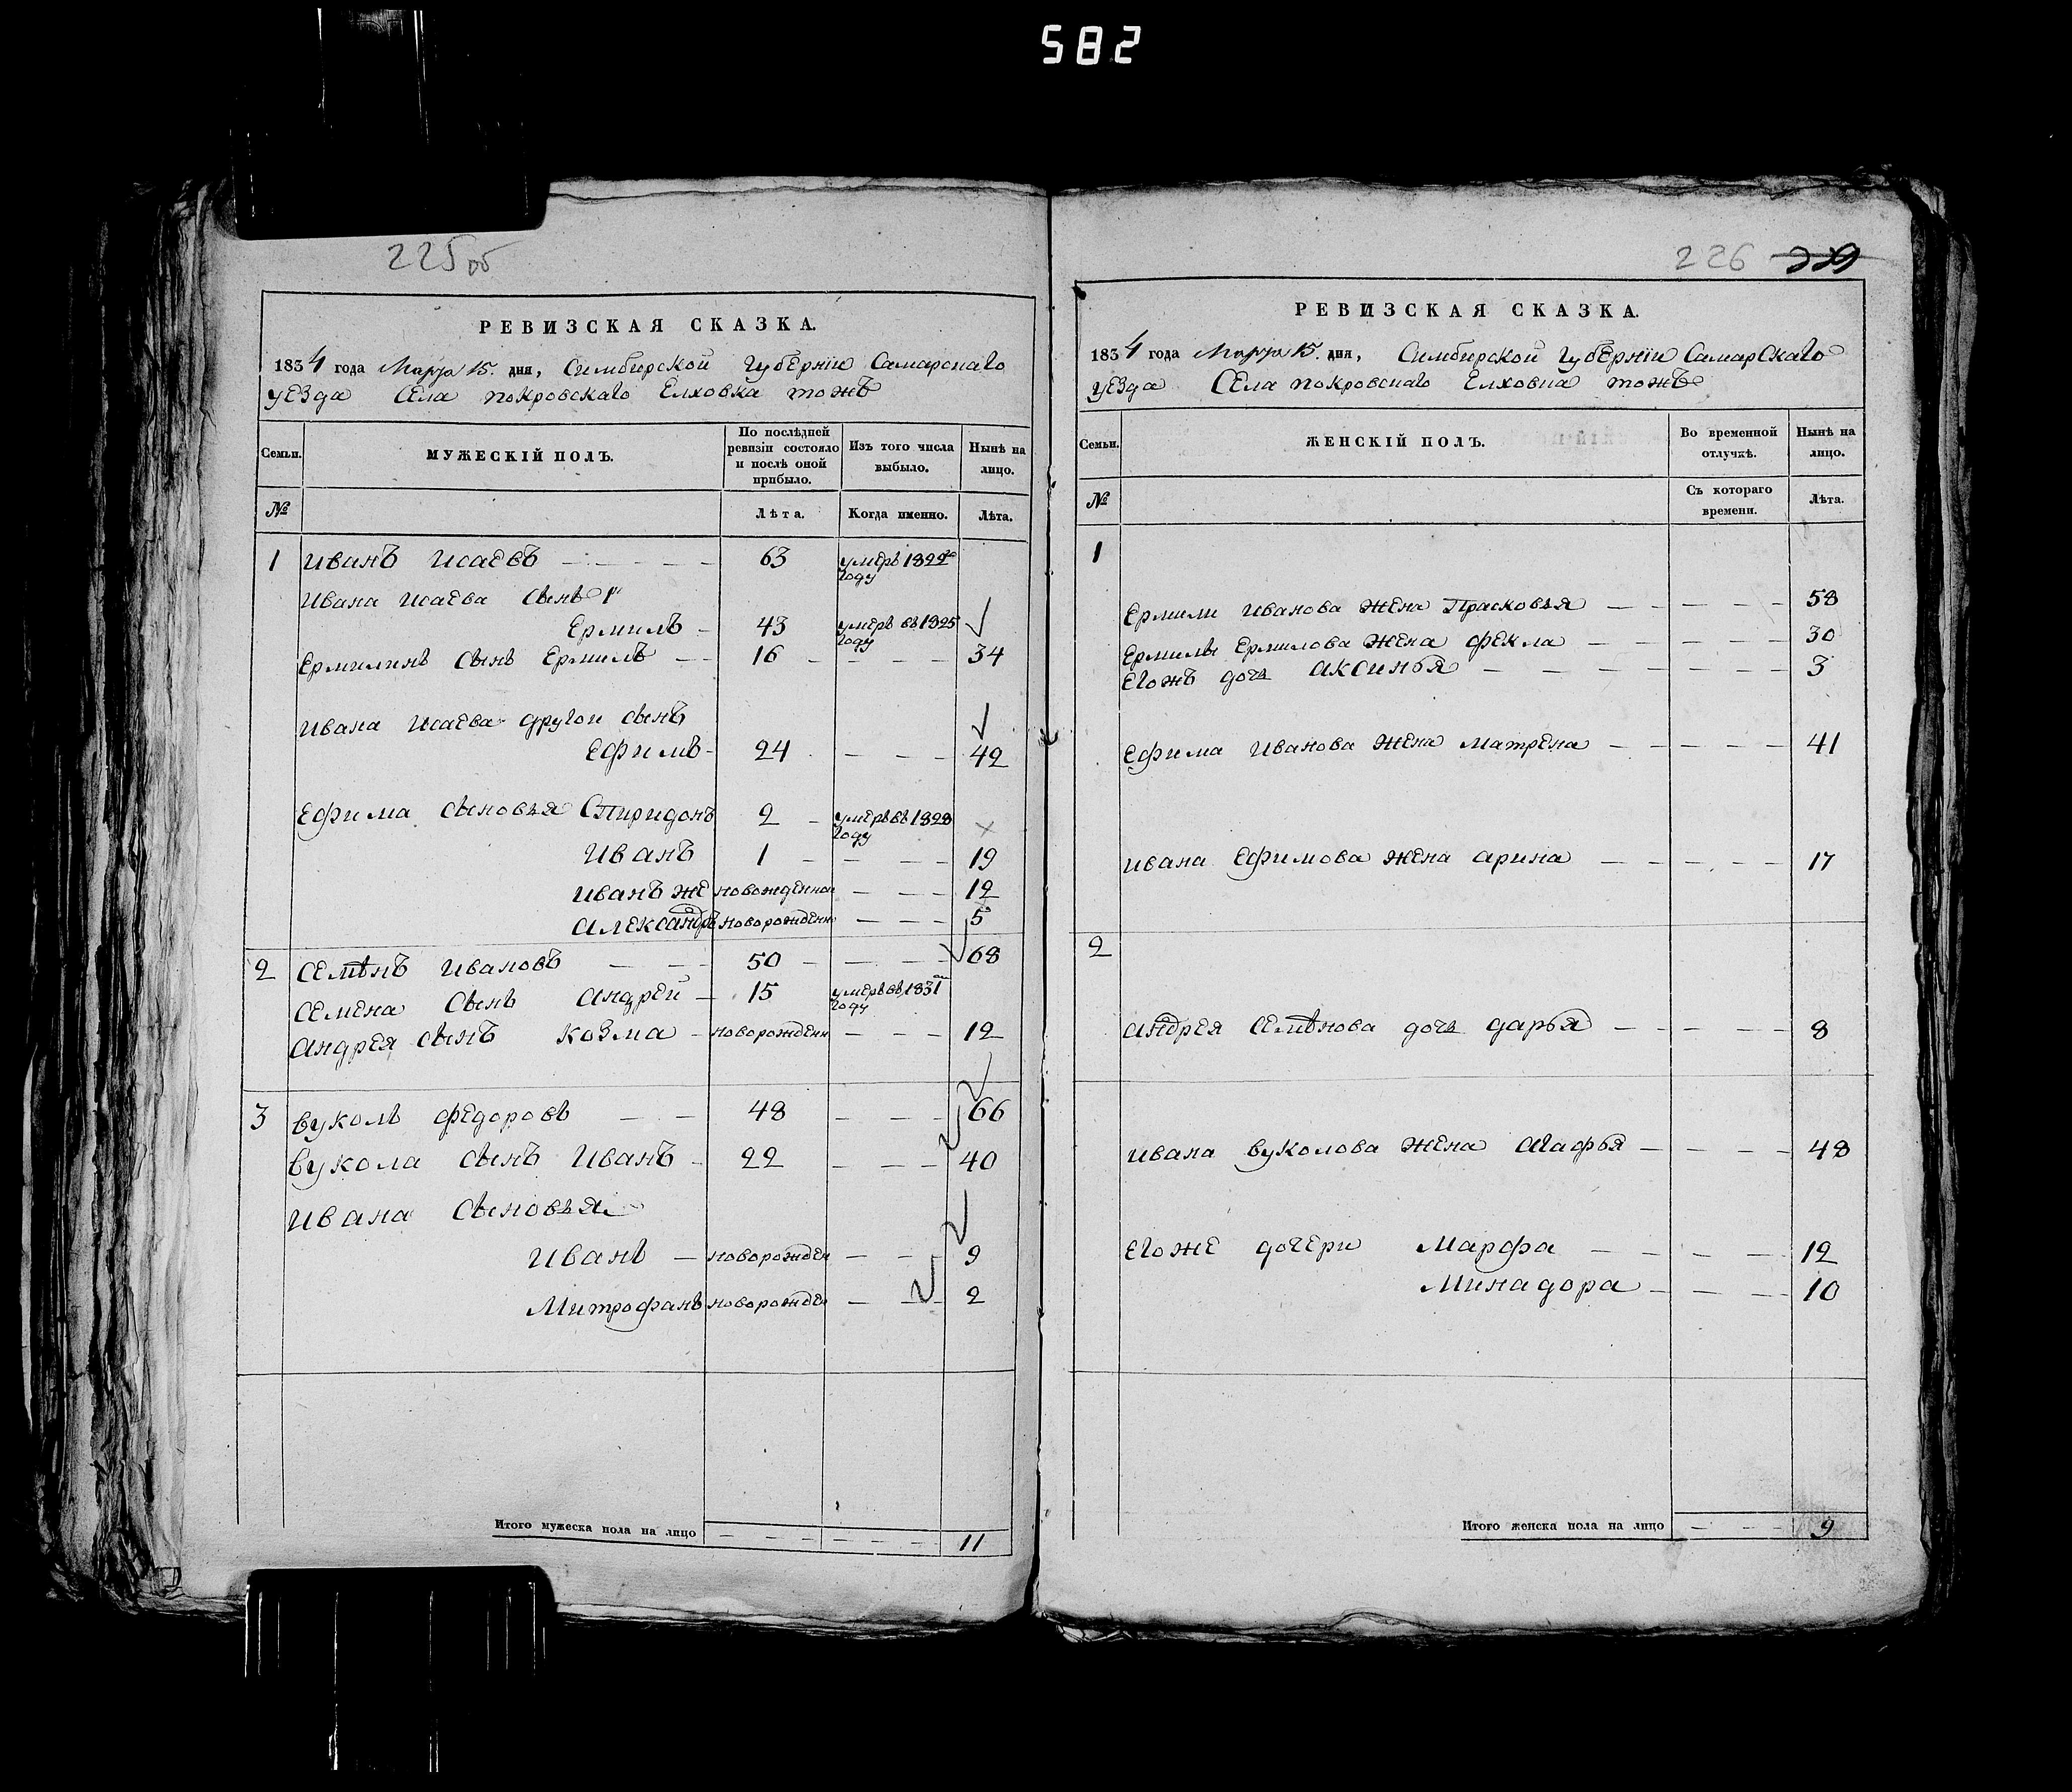 582
225об
РЕВИЗСКАЯ СКАЗКА.
1834 года Марта 15. дня, Симбирской Губернiи Самарскаго
уезда Села покровскаго Елховка тожъ
Семьи. МУЖЕСКІЙ ПОЛЪ. По послѣдней ревизіи состояло и послѣ оной прибыло. Изъ того числа выбыло. Нынѣ на лицо.
№ Лѣта. Когда именно. Лѣта.
1 Иванъ Исаевъ 63 умеръ 1822го году
Ивана Исаева сынъ 1й
Ермилъ 43 умеръ въ 1825 году
Ермилинъ сынъ Ермилъ 16 34
Ивана Исаева другои сынъ
Ефимъ 24 42
Ефима сыновья Спиридонъ 2 умеръ въ 1828 году
Иванъ 1 19
Иванъ же новожденнои 12
Александръ новорожденн 5
2 Семѣнъ Ивановъ 50 68
Семена сынъ Андрей 15 умеръ въ 1831 году
Андрея сынъ Козма новорожденн 12
3 Вуколъ Федоровъ 48 66
Вукола сынъ Иванъ 22 40
Ивана сыновья
Иванъ новорожден 9
Митрофанъ новорожден 2
Итого мужеска пола на лицо 11
226
РЕВИЗСКАЯ СКАЗКА.
1834 года Марта 15. дня, Симбирской Губернiи Самарскаго
уезда Села покровскаго Елховка тожъ
Семьи. ЖЕНСКІЙ ПОЛЪ. Во временной отлучкѣ. Нынѣ на лицо.
№ Съ котораго времени. Лѣта.
1
Ермили Иванова жена Прасковья 58
Ермилы Ермилова жена Фекла 30
Егожъ дочь Аксинья 3
Ефима Иванова жена Матрена 41
Ивана Ефимова жена Арина 17
2
Андрея Семѣнова дочь Дарья 8
Ивана Вуколова жена Агафья 48
Егоже дочери Марфа 12
Минадора 10
Итого женска пола на лицо 9